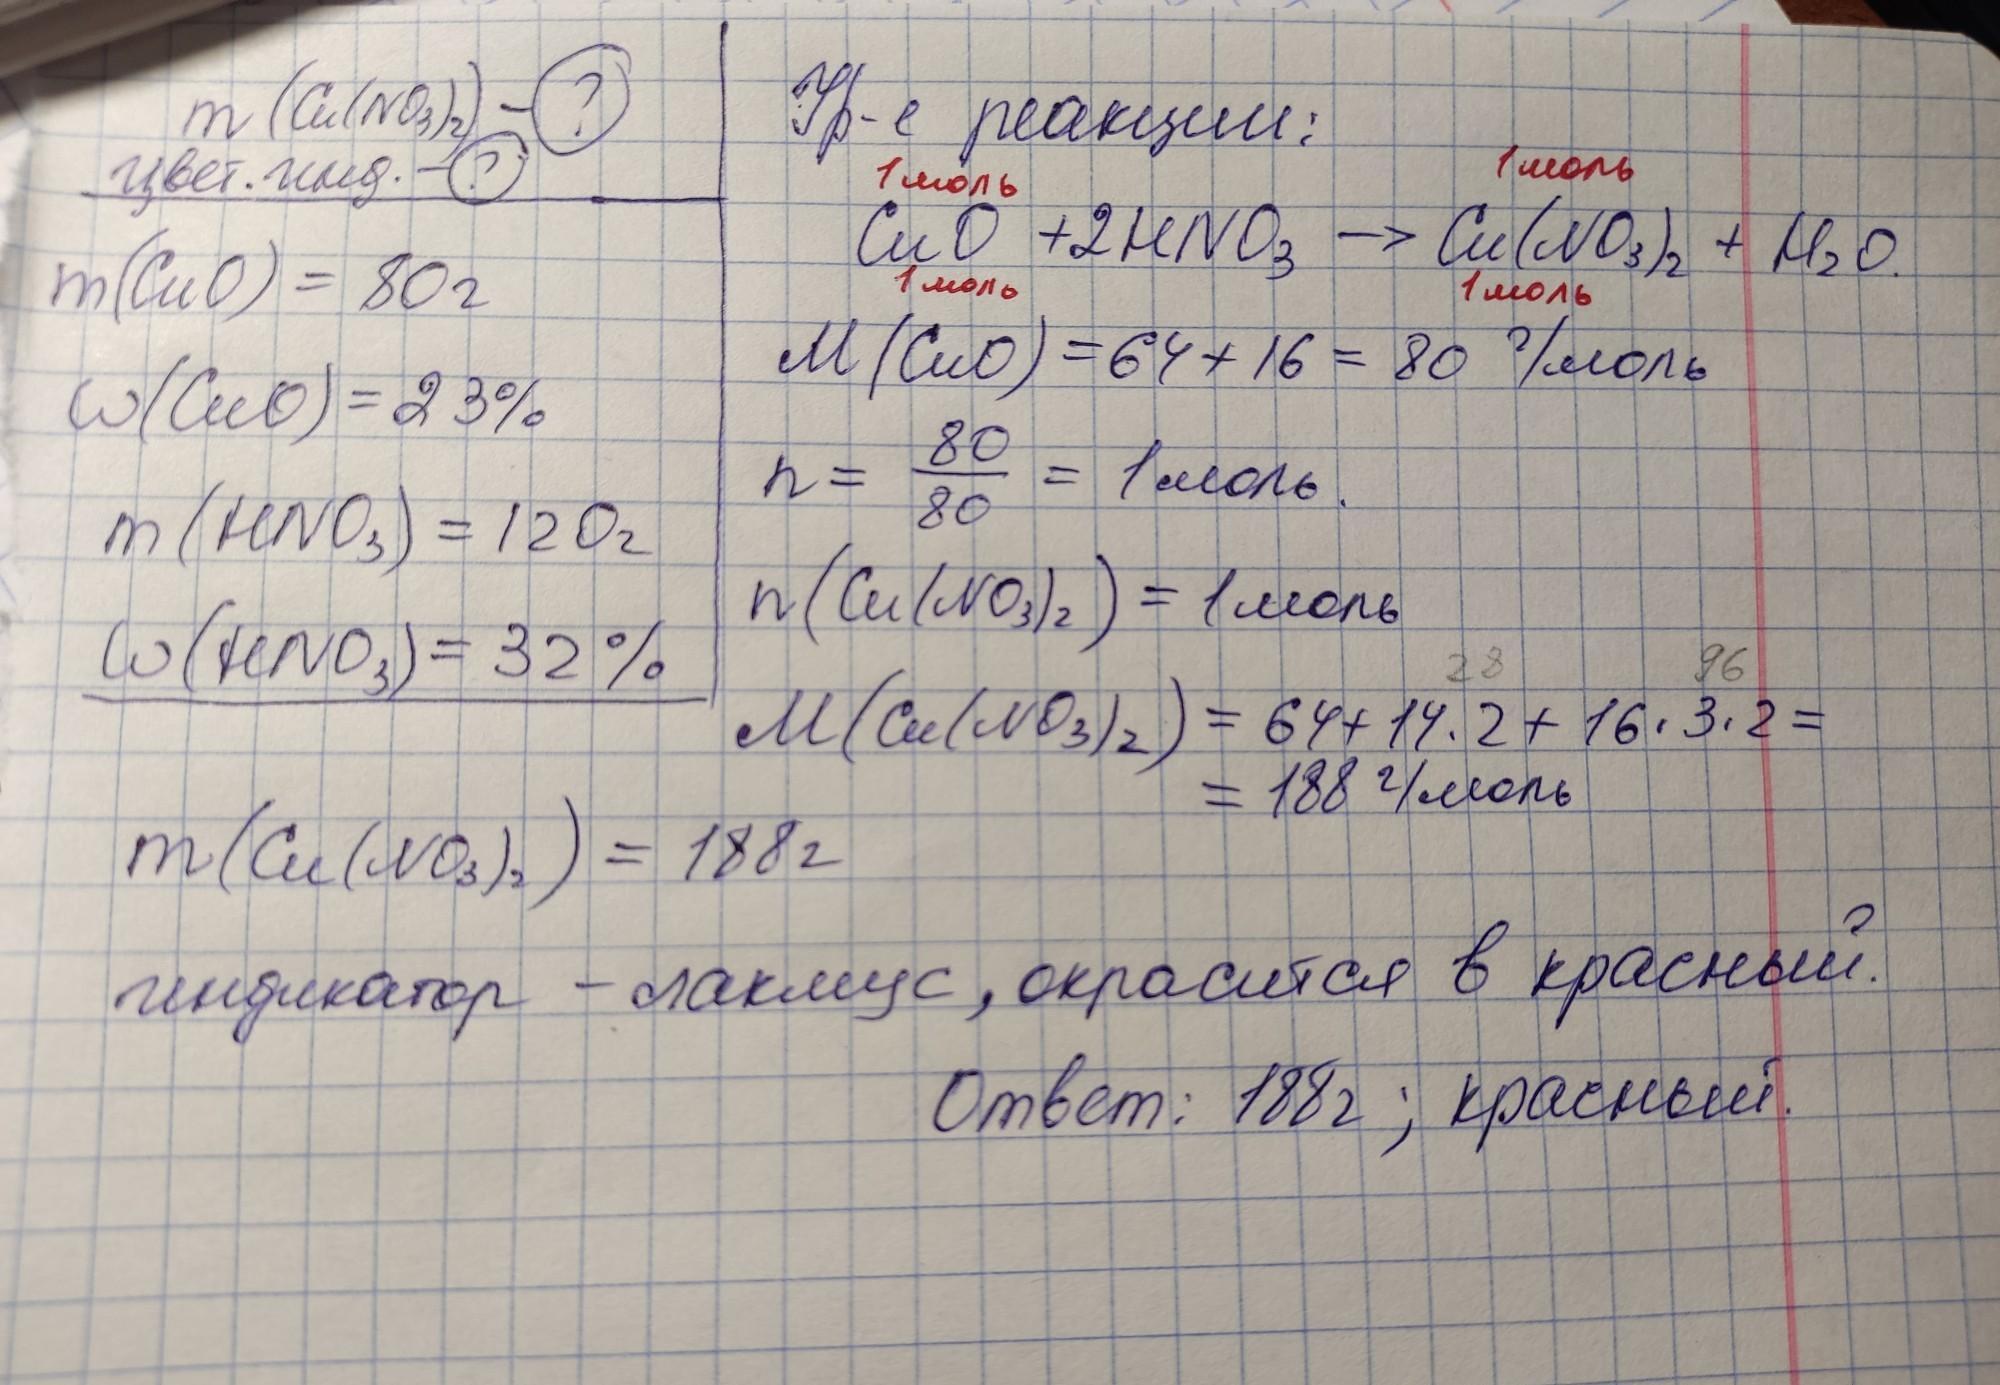 m(Cu(NO₃)₂) - ?
цвет. инд. - ?
m(CuO) = 80г
ω(CuO) = 23%
m(HNO₃) = 120г
ω(HNO₃) = 32%
Ур-е реакции:
1моль 1моль
CuO + 2HNO₃ → Cu(NO₃)₂ + H₂O.
1моль 1моль
M(CuO) = 64 + 16 = 80 г/моль
n = 80/80 = 1моль.
n(Cu(NO₃)₂) = 1моль
28 96
M(Cu(NO₃)₂) = 64 + 14 · 2 + 16 · 3 · 2 =
= 188 г/моль
m(Cu(NO₃)₂) = 188г
индикатор - лакмус, окрасится в красный.
Ответ: 188г ; красный.